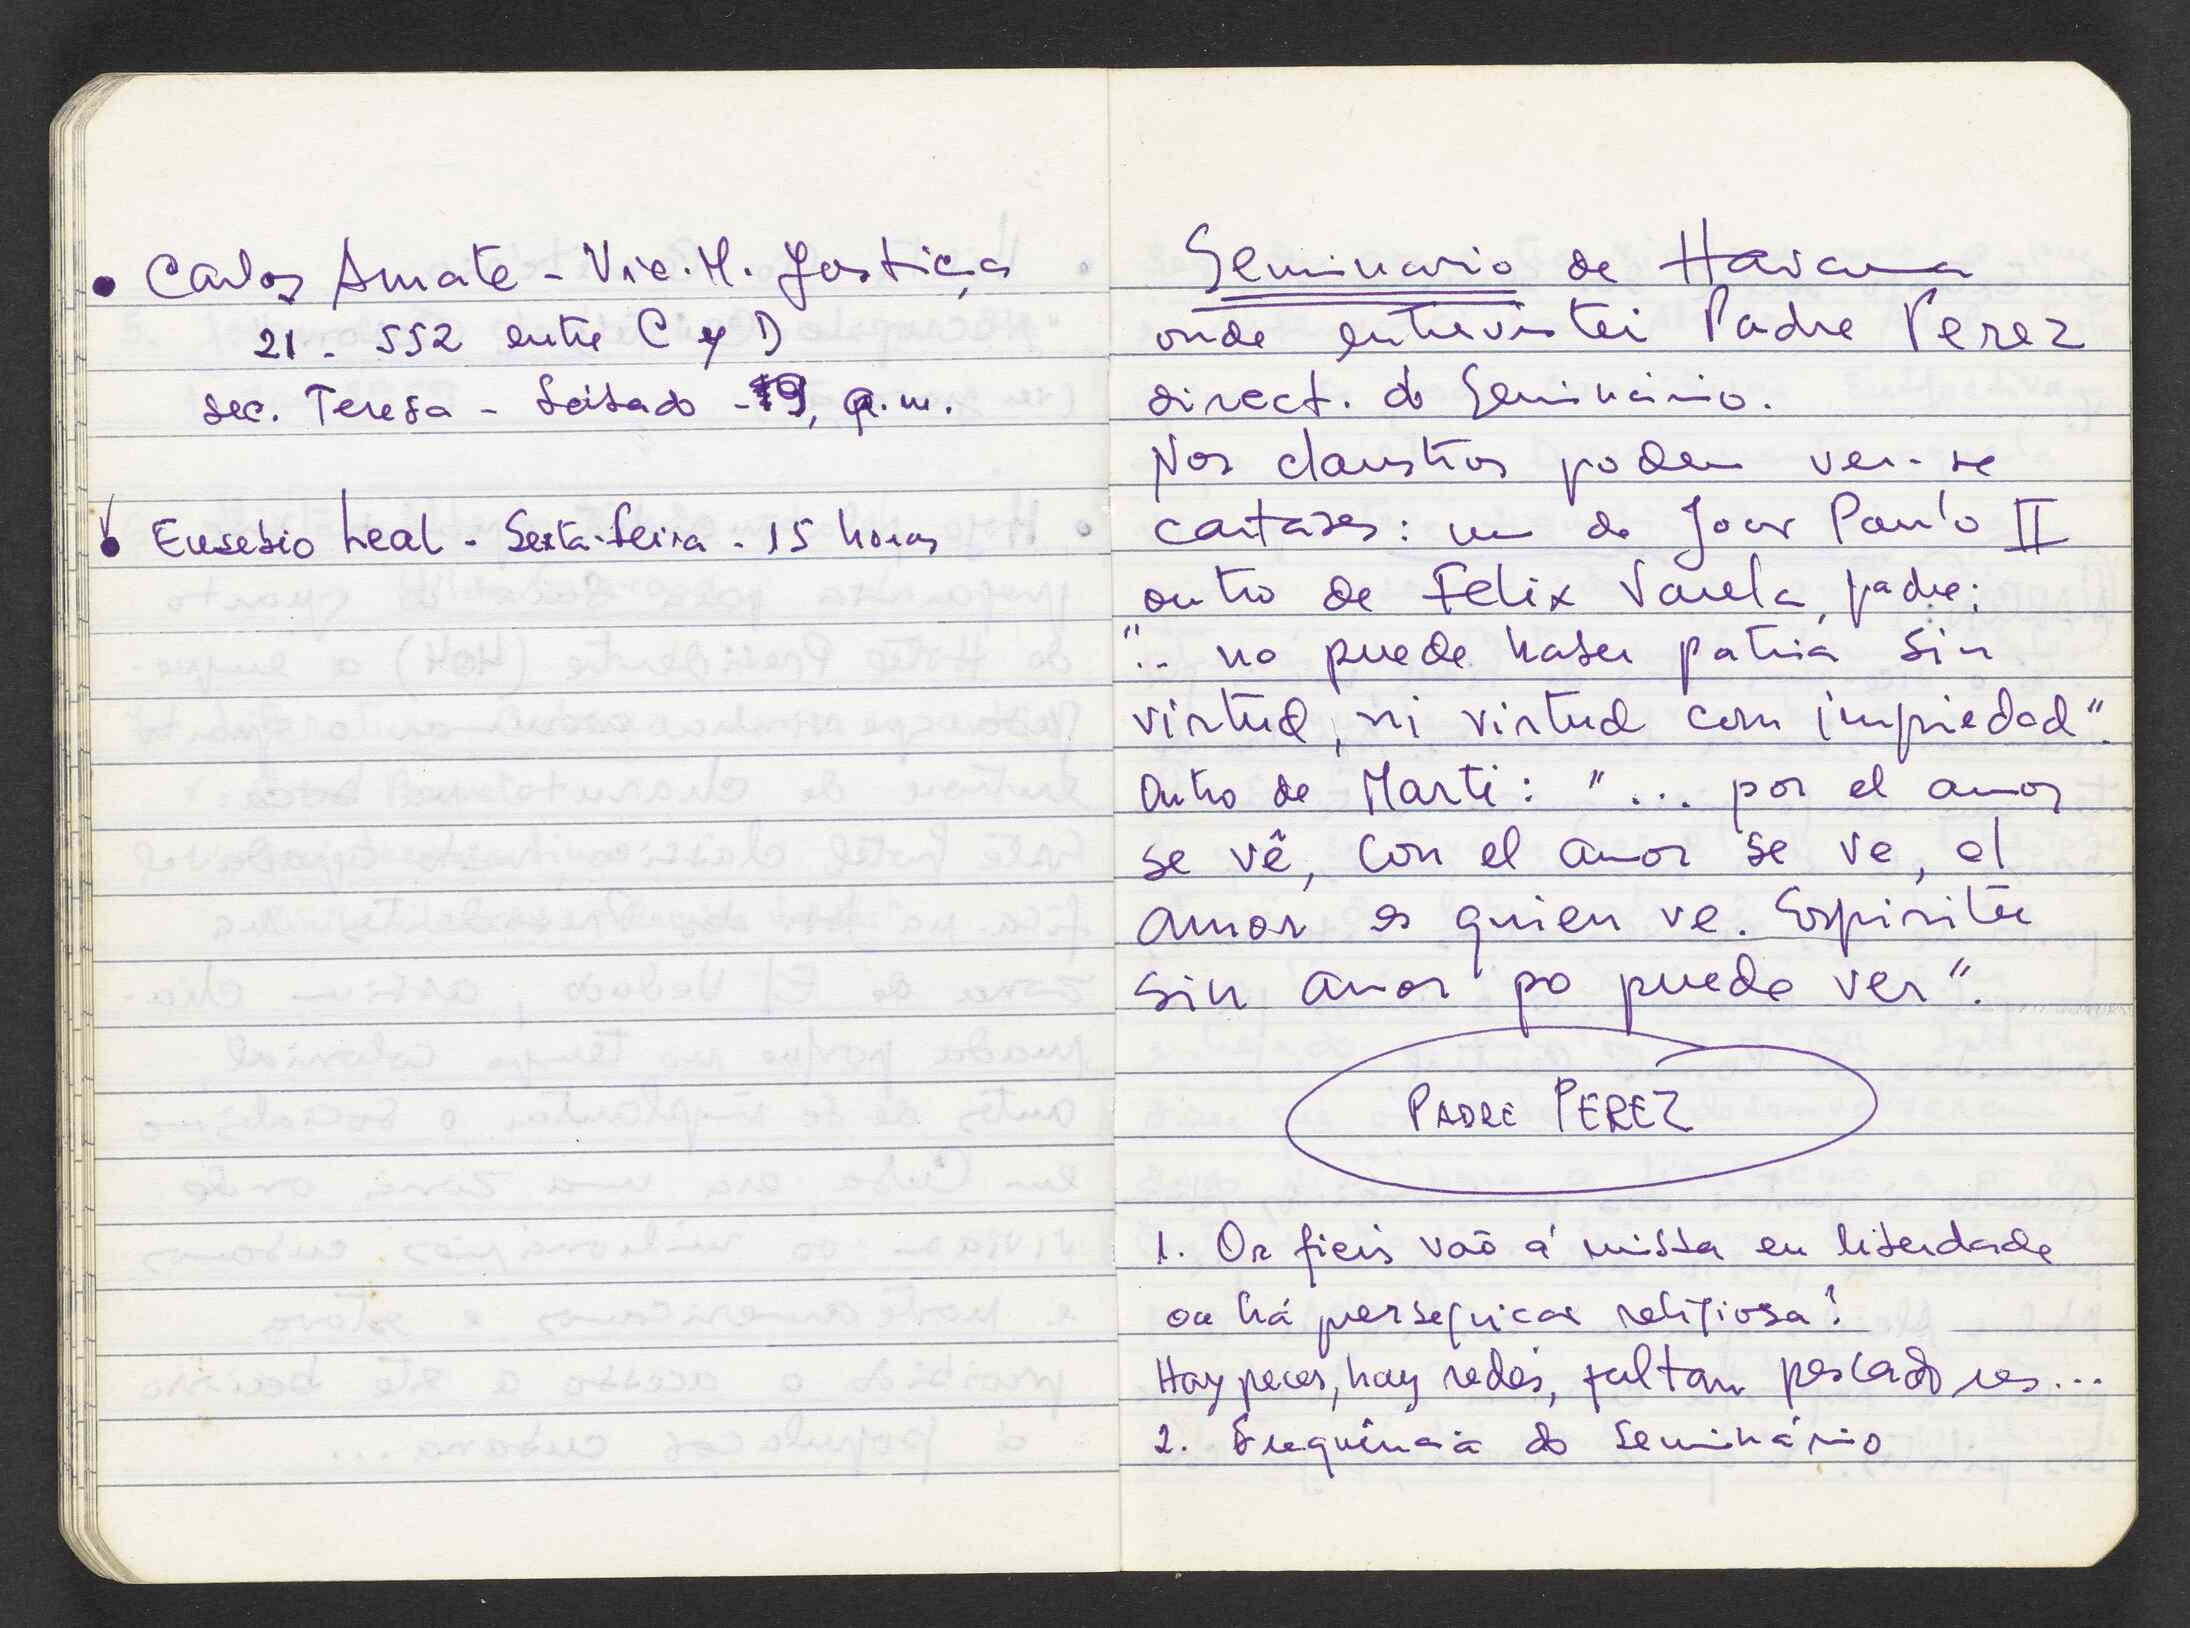 • Carlos Amate - Vic. M. Justiça
21 - 552 entre C y D
sec. Teresa - Sábado - 9, a.m.
• Eusebio Leal - Sexta-feira - 15 horas
Seminario de Havana
onde entrevistei Padre Perez
direct. do Seminário.
Nos claustros podem ver-se
cartazes: um do Joao Paulo II
outro de Felix Varela, padre:
"... no puede haber patria sin
virtud, ni virtud com impiedad".
Outro de Marti: "... por el amor
se vê, con el amor se ve, el
amor es quien ve. Espiritu
sin amor no puede ver".
PADRE PEREZ
1. Os fieis vaõ á missa em liberdade
ou há perseguicao religiosa?
Hay peces, hay redes, faltan pescadores...
2. Frequência do Seminário